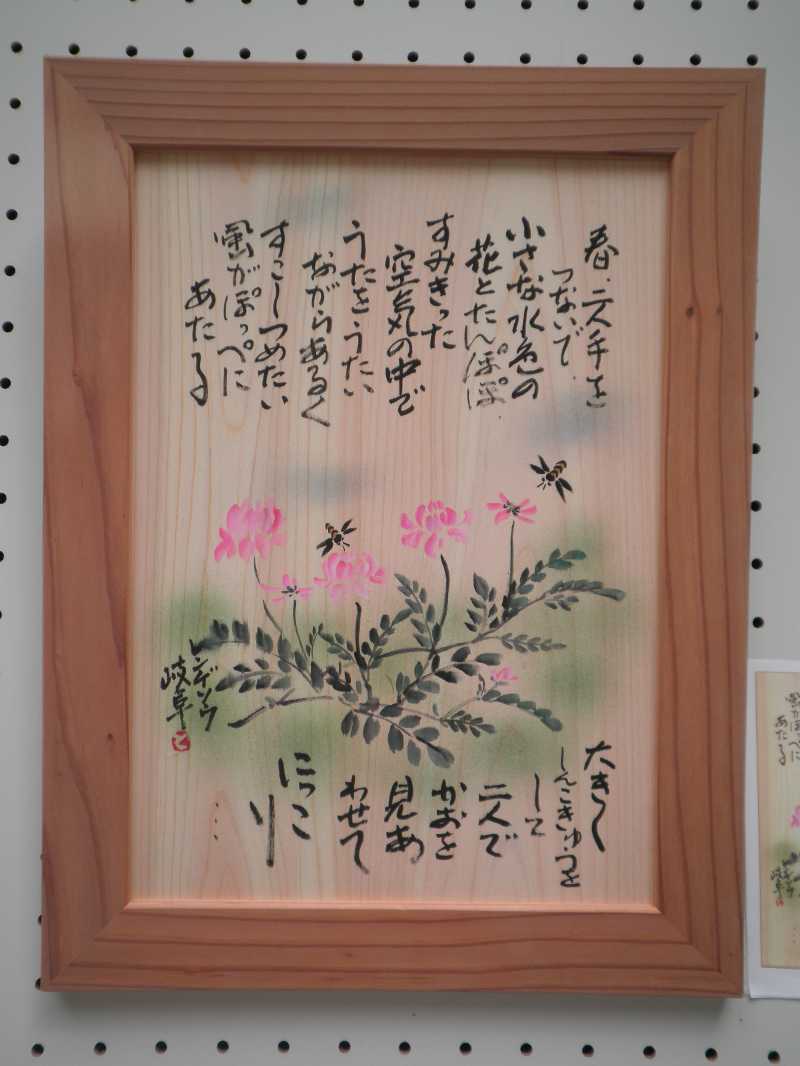 春、二人手を
つないで
小さな水色の
花とたんぽぽ
すみきった
空気の中で
うたをうたい
ながらあるく
すこしつめたい
風がほっぺに
あたる
大きく
しんこきゅうを
して
二人で
かおを
見あ
わせて
にっこ
り…
レンゲソウ
岐阜
風がほっぺに
あたる
レンゲソウ
岐阜